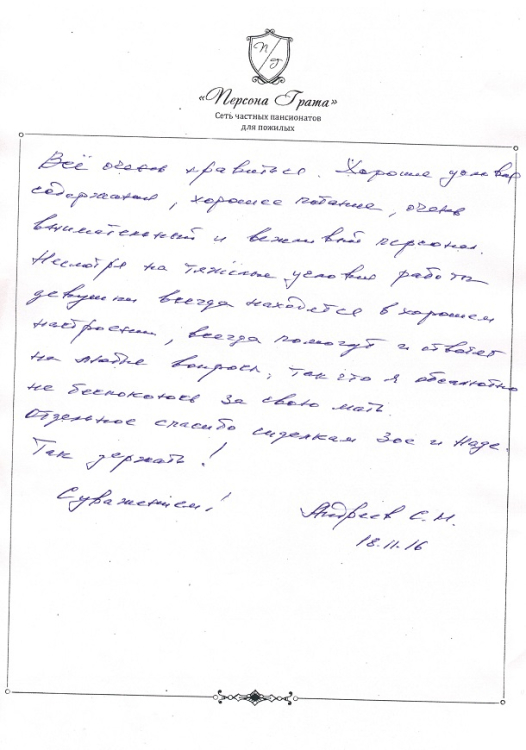 П
Г
«Персона Грата»
Сеть частных пансионатов
для пожилых
Всё очень нравиться. Хорошие условия
содержания, хорошее питание, очень
внимательный и вежливый персонал.
Несмотря на тяжёлые условия работы
девушки всегда находятся в хорошем
настроении, всегда помогут и ответят
на любые вопросы, так что я абсолютно
не беспокоюсь за свою мать.
Отдельное спасибо сиделкам Зое и Наде.
Так держать!
С уважением!
Андреев С.Н.
18.11.16